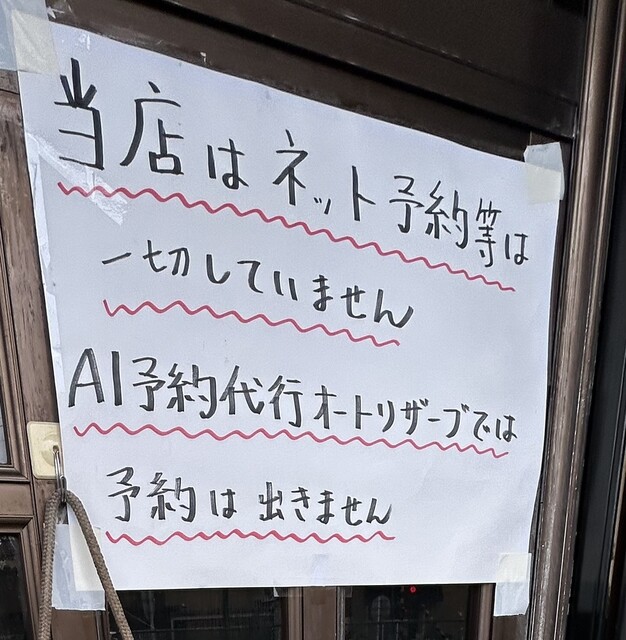 当店はネット予約等は
一切していません
AI予約代行オートリザーブでは
予約は出きません